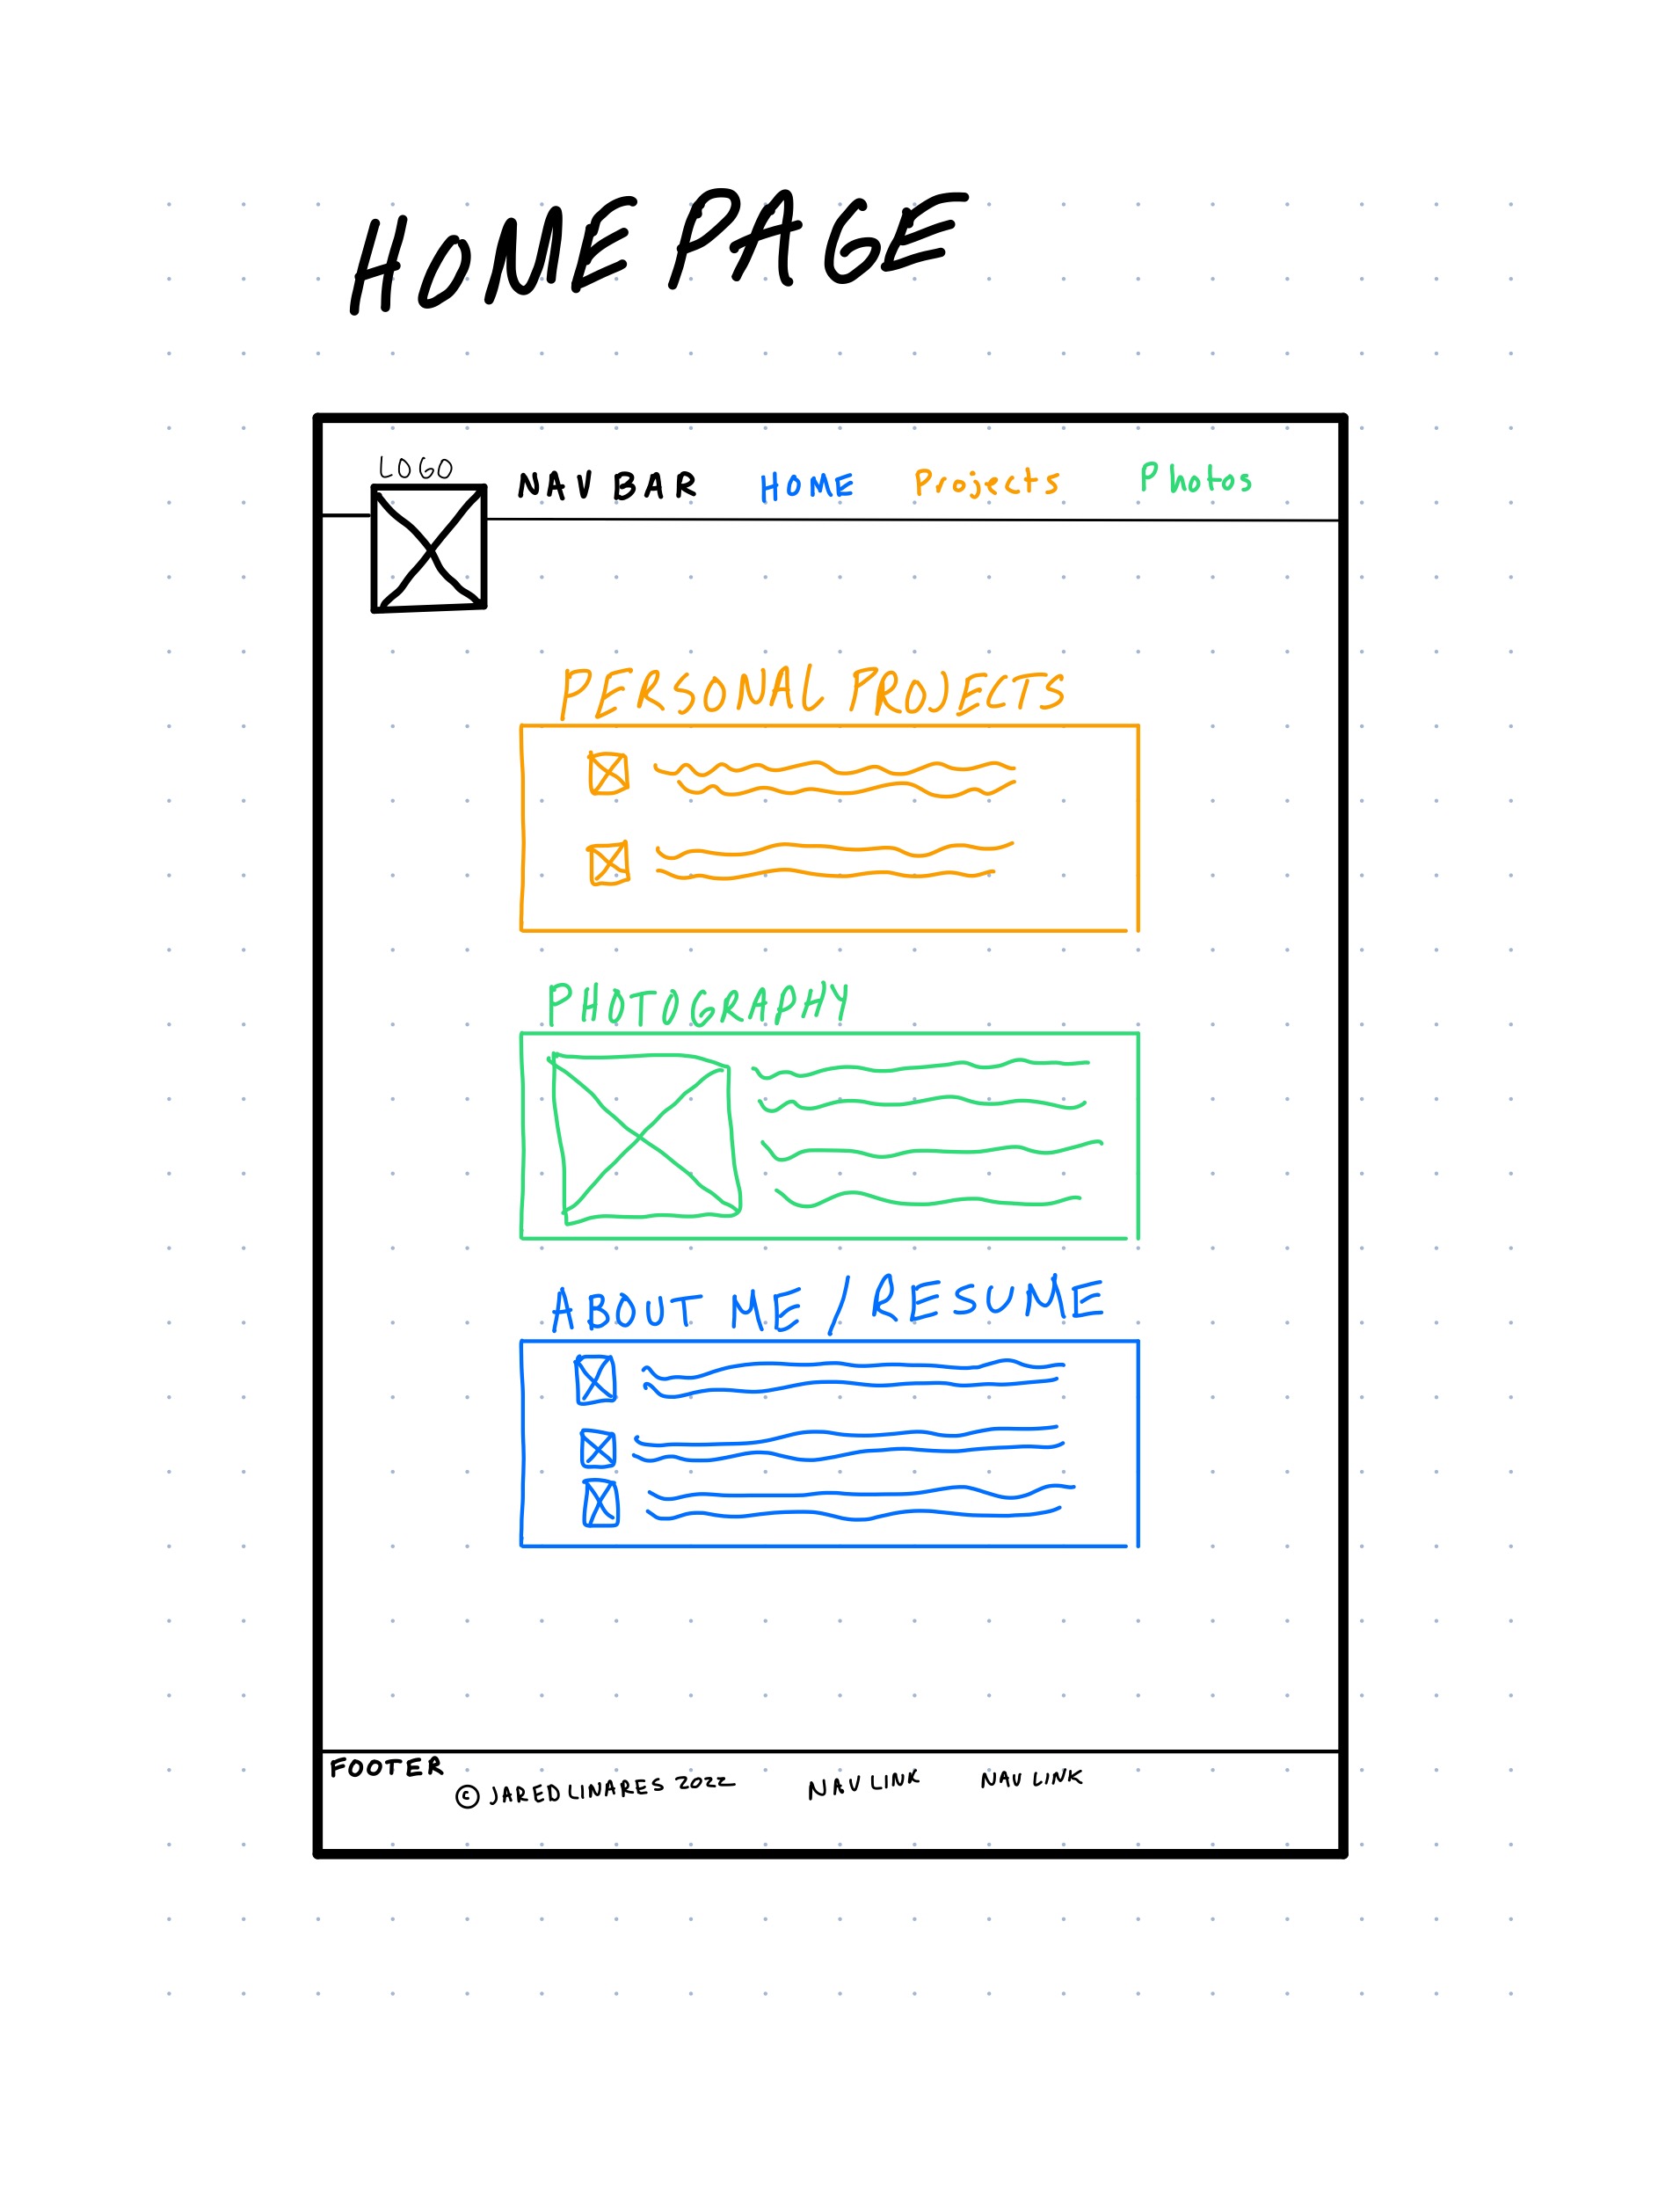 HOME PAGE
LOGO
NAV BAR HOME Projects Photos
PERSONAL PROJECTS
PHOTOGRAPHY
ABOUT ME / RESUME
FOOTER
© JARED LINARES 2022 NAV LINK NAV LINK